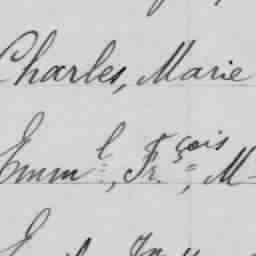 Charles, Marie
Emm.l, Fr.çois, M-